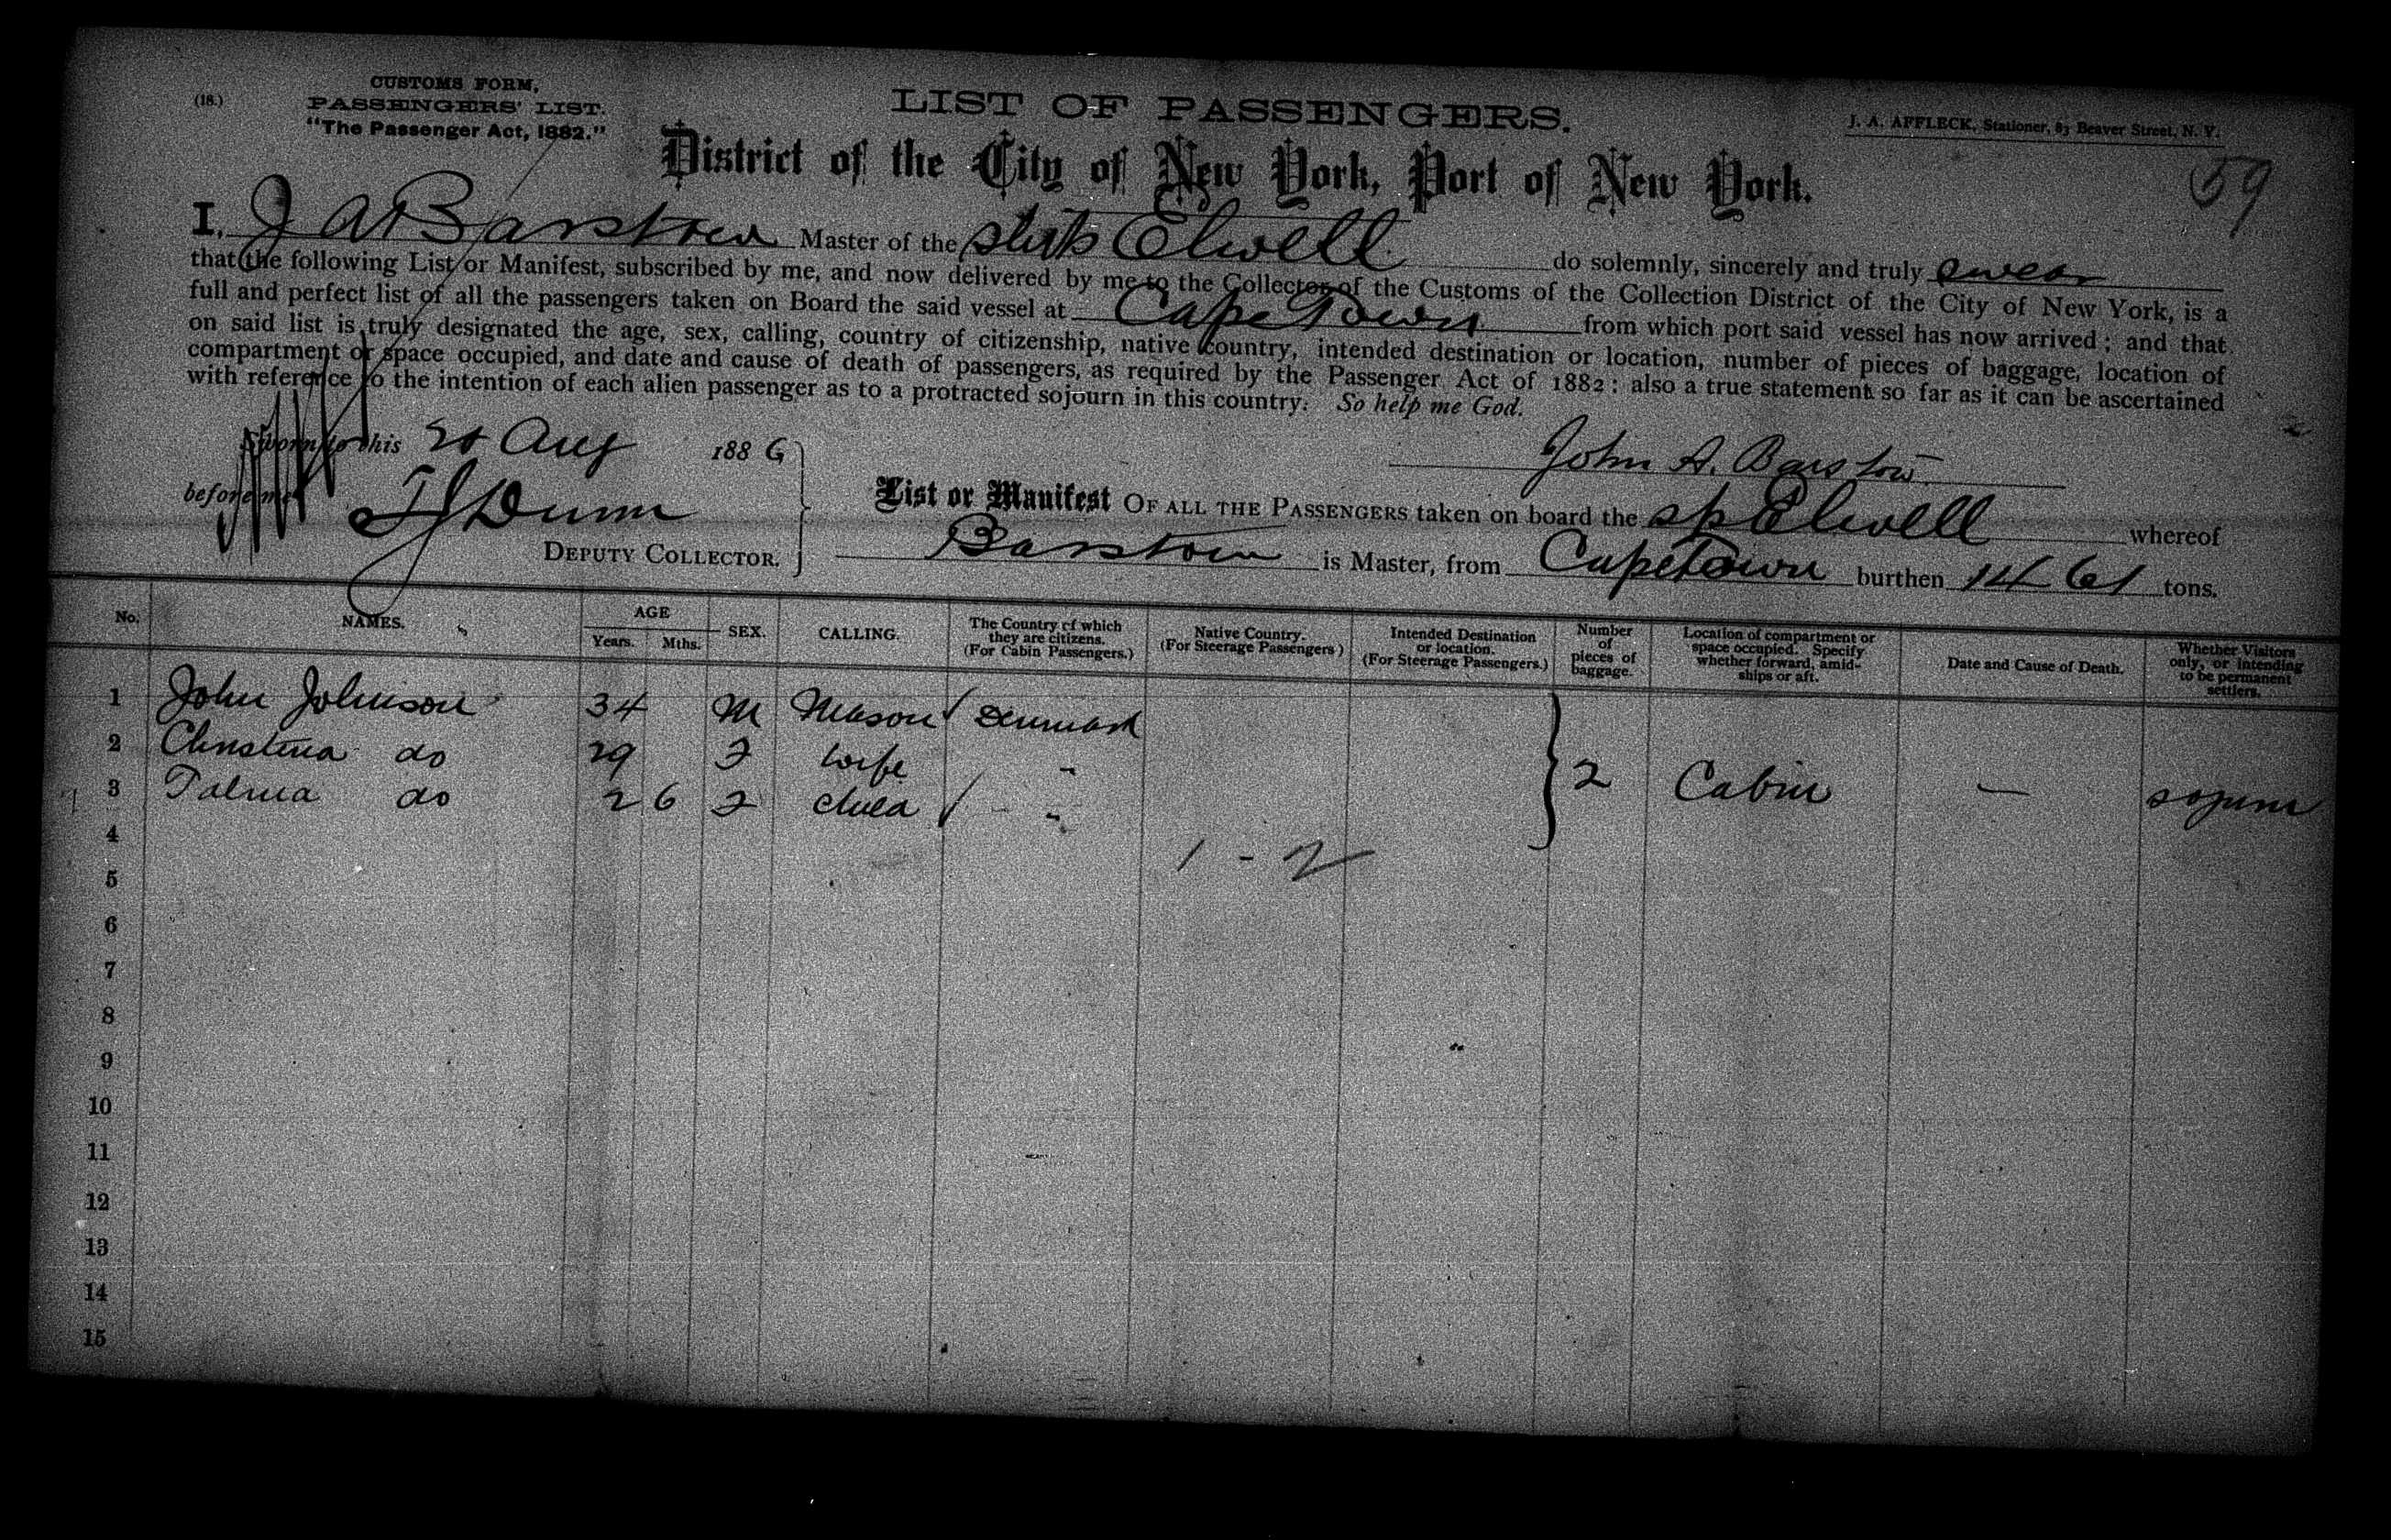 (18.)
CUSTOMS FORM,
PASSENGERS' LIST.
"The Passenger Act, 1882."
LIST OF PASSENGERS.
J. A. AFFLECK, Stationer, 83 Beaver Street, N. Y.
District of the City of New York, Port of New York.
59
I, J A Barstow Master of the Elwell do solemnly, sincerely and truly swear
that the following List or Manifest, subscribed by me, and now delivered by me to the Collector of the Customs of the Collection District of the City of New York, is a
full and perfect list of all the passengers taken on Board the said vessel at Cape Town from which port said vessel has now arrived; and that
on said list is truly designated the age, sex, calling, country of citizenship, native country, intended destination or location, number of pieces of baggage, location of
compartment or space occupied, and date and cause of death of passengers, as required by the Passenger Act of 1882: also a true statement so far as it can be ascertained
with reference to the intention of each alien passenger as to a protracted sojourn in this country. So help me God.
Sworn to this 20 Aug 1886
John A. Barstow
before me Dunn
DEPUTY COLLECTOR.
List or Manifest OF ALL THE PASSENGERS taken on board the sp Elwell whereof
Barstow is Master, from Capetown burthen 1461 tons.
No. NAMES. AGE Years. Mths. SEX. CALLING. The Country of which they are citizens. (For Cabin Passengers.) Native Country. (For Steerage Passengers) Intended Destination or location. (For Steerage Passengers.) Number of pieces of baggage. Location of compartment or space occupied. Specify whether forward, amidships or aft. Date and Cause of Death. Whether Visitors only, or intending to be permanent settlers.
1 John Johnson 34 M Mason Denmark
2 Christina do 29 F wife "
3 do 2 6 F child " 2 Cabin — sojourn
4
1 - 2
5
6
7
8
9
10
11
12
13
14
15